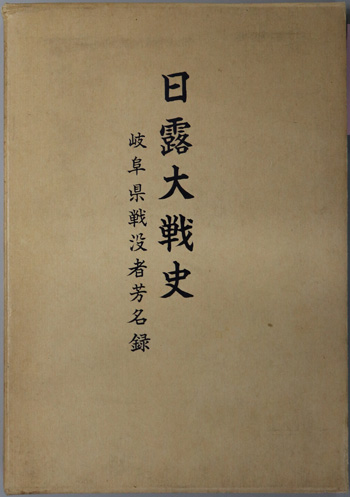 日露大戦史
岐阜県戦没者芳名録